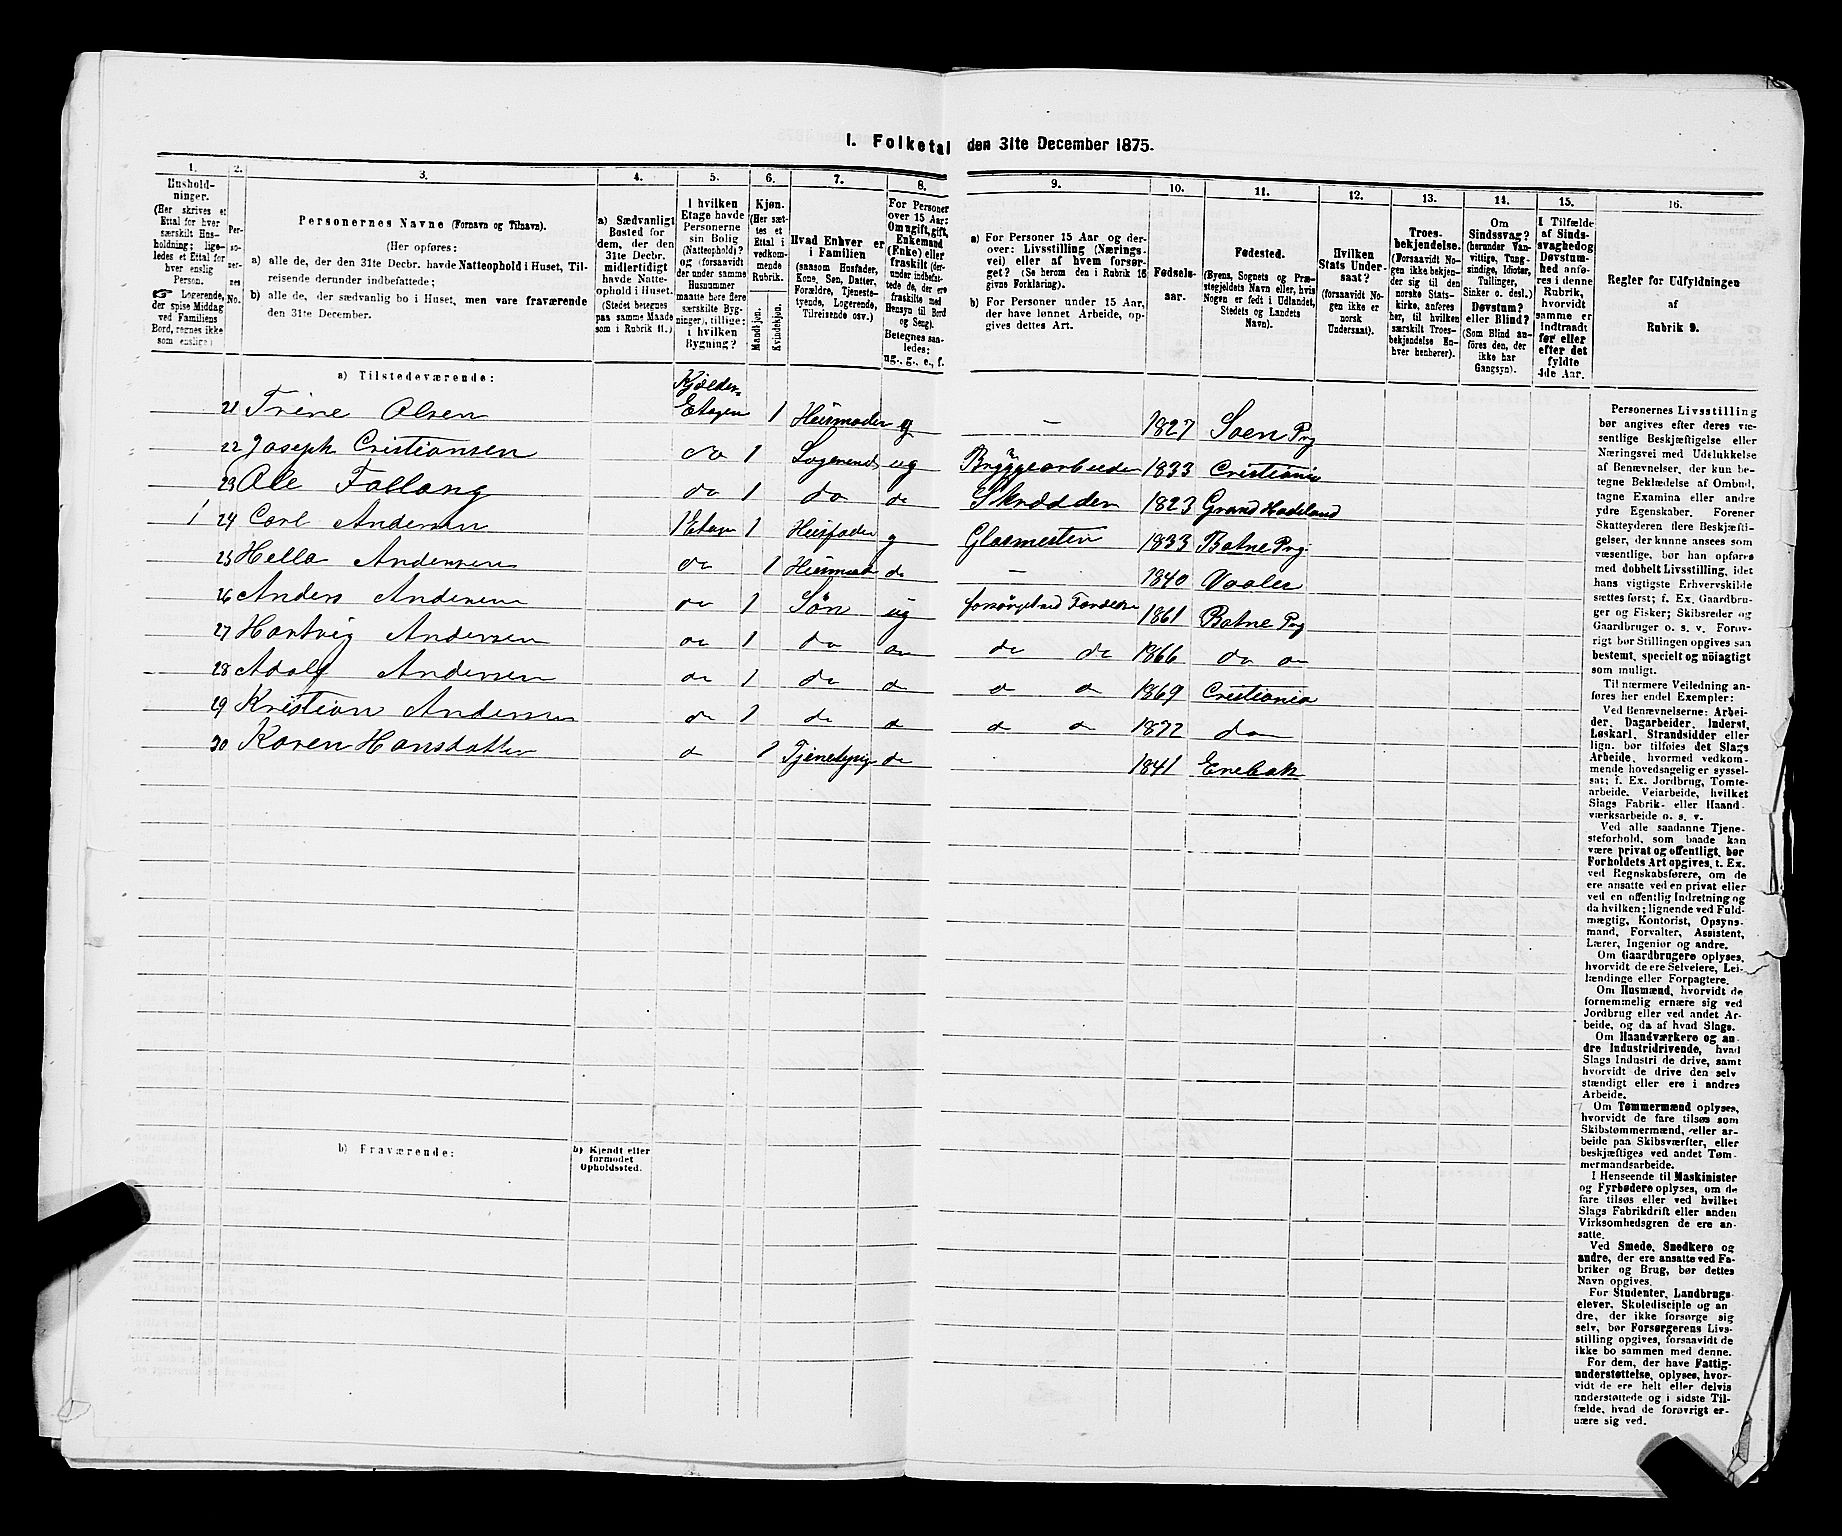 I. Folketal den 31te December 1875.
1. 2. 3. 4. 5. 6. 7. 8. 9. 10. 11. 12. 13. 14. 15. 16.
Hushold-
ninger.
(Her skrives et
Ettal for hver
særskilt Hus-
holdning; lige-
ledes et Ettal for
hver enslig
Person.
☞ Logerende,
der spise Middag
ved Familiens
Bord, regnes ikke
som enslige.)
Per-
so-
ner-
nes
No.
Personernes Navne (Fornavn og Tilnavn).
(Her opføres:
a) alle de, der den 31te Decbr. havde Natteophold i Huset, Til-
reisende derunder indbefattede;
b) alle de, der sædvanlig bo i Huset, men vare fraværende
den 31te December.
a) Sædvanligt
Bosted for
dem, der den
31te Decbr.
midlertidigt
havde Natte-
ophold i Huset.
(Stedet betegnes
paa samme Maade
som i Rubrik 11.)
I hvilken
Etage havde
Personerne
sin Bolig
(Natteophold)?
og (forsaavidt
der under samme
Husnummer
maatte høre flere
særskilte Byg-
ninger), tillige:
i hvilken
Bygning?
Kjøn.
(Her sæt-
tes et
Ettal i
vedkom-
mende
Rubrik.
Mandkjøn.
Kvindekjøn.
Hvad Enhver er
i Familien
(saasom Husfader,
Kone, Søn, Datter,
Forældre, Tjeneste-
tyende, Logerende,
Tilreisende osv.)
For Personer
over 15 Aar:
Om ugift, gift,
Enkemand
(Enke) eller
fraskilt (der-
under indbefat-
tede de, der ere
fraskilte med
Hensyn til Bord
og Seng).
Betegnes saa-
ledes:
ug., g., e., f.
a) For Personer 15 Aar og der-
over: Livsstilling (Nærings-
vei) eller af hvem forsør-
get? (Se herom den i Rubrik 16
givne Forklaring).
b) For Personer under 15 Aar,
der have lønnet Arbeide, op-
gives dettes Art.
Fødsels-
aar.
Fødested.
(Byens, Sognets og Præ-
stegjeldets Navn eller, hvis
Nogen er født i Udlandet,
Stedets og Landets
Navn).
Hvilken
Stats Under-
saat?
(forsaavidt No-
gen ikke er
norsk
Undersaat).
Troes-
bekjendelse.
(Forsaavidt No-
gen ikke bekjen-
der sig til den
norske Stats-
kirke, anføres
her, til hvilken
særskilt Troes-
bekjendelse En-
hver henhører).
Om
Sindssvag?
(herunder Van-
vittige, Tung-
sindige, Idioter,
Tullinger,
Sinker o. desl.)
Døvstum?
eller Blind?
(Som Blind an-
føres den, der
ikke har
Gangsyn).
I Tilfælde
af Sinds-
svaghed og
Døvstum-
hed anfø-
res i denne
Rubrik,
hvorvidt
samme er
indtraadt
før eller
efter det
fyldte
4de Aar.
Regler for Udfyldningen
af
Rubrik 9.
a) Tilstedeværende:
Kjelder-
21 Trine Olsen Etagen 1 Husmoder g — 1827 Soen Prg
22 Joseph Cristiansen do 1 Logerend ug Bryggearbeider 1833 Cristiania
23 Ole Follang do 1 do do Skrædder 1823 Grand Hadeland
1 24 Carl Andersen 1 Etage 1 Husfader g Glasmester 1833 Botne Prg.
25 Hella Andersen do 1 Husmod do — 1840 Vaaler
26 Anders Andersen do 1 Søn ug forsørget ved Forældre 1861 Botne Prg
27 Hartvig Andersen do 1 do do do do 1866 do do
28 Adolf Andersen do 1 do do do do 1869 Cristiania
29 Kristian Andersen do 1 do do do do 1872 do
30 Karen Hansdatter do 1 Tjenestepig do 1841 Enebak
b) Fraværende:
b) Kjendt eller
formodet
Opholdssted.
Personernes Livsstilling
bør angives efter deres væ-
sentlige Beskjæftigelse eller
Næringsvei med Udelukkelse
af Benævnelser, der kun be-
tegne Beklædelse af Ombud,
tagne Examina eller andre
ydre Egenskaber. Forener
Skatteyderen flere Beskjæfti-
gelser, der kunne ansees som
væsentlige, bør han opføres
med dobbelt Livsstilling, idet
hans vigtigste Erhvervskilde
sættes først; f. Ex. Gaardbru-
ger og Fisker; Skibsreder og
Gaardbruger o. s. v. Forøv-
rigt bør Stillingen opgives saa
bestemt, specielt og nøiagtigt
som muligt.
Til nærmere Veiledning an-
føres her endel Exempler:
Ved Benævnelserne: Arbei-
der, Dagarbeider, Inderst,
Løskarl, Strandsidder eller
lign. bør tilføies det Slags
Arbeide, hvormed vedkom-
mende hovedsagelig er syssel-
sat; f. Ex. Jordbrug, Tomte-
arbeide, Veiarbeide, hvilket
Slags Fabrik- eller Haand-
værksarbeide o. s. v.
Ved alle saadanne Tjene-
steforhold, som baade kan
være privat og offentligt, bør
Forholdets Art opgives, t. Ex.
ved Regnskabsførere, om de
ere ansatte ved en privat eller
ved en offentlig Indretning og
da hvilken; lignende ved Fuld-
mægtig, Kontorist, Opsyns-
mand, Forvalter, Assistent,
Lærer, Ingeniør og andre.
Om Gaardbrugere oplyses,
hvorvidt de ere Selveiere, Lei-
lændinge eller Forpagtere.
Om Husmænd, hvorvidt de
fornemmelig ernære sig ved
Jordbrug eller ved andet Ar-
beide, og da af hvad Slags.
Om Haandværkere og an-
dre Industridrivende, hvad
Slags Industri de drive, samt
hvorvidt de drive den selv-
stændigt eller ere i andres
Arbeide.
Om Tømmermænd oplyses,
hvorvidt de fare tilsøs som
Skibstømmermænd, eller ar-
beide paa Skibsværfter, eller
beskjæftiges ved andet Tøm-
mermandsarbeide.
I Henseende til Maskinister
og Fyrbødere oplyses, om de
fare tilsøs eller ved hvilket
Slags Fabrikdrift eller anden
Virksomhedsgren de ere an-
satte.
Ved Smede, Snedkere og
andre, der ere ansatte ved Fa-
briker og Brug, bør dettes
Navn opgives.
For Studenter, Landbrugs-
elever, Skoledisciple og an-
dre, der ikke forsørge sig
selv, bør Forsørgerens Livs-
stilling opgives, forsaavidt de
ikke bo sammen med denne.
For dem, der have Fattig-
understøttelse, oplyses, hvor-
vidt de ere helt eller delvis
understøttede og i sidste Til-
fælde, hvad de forøvrigt er-
nære sig ved.